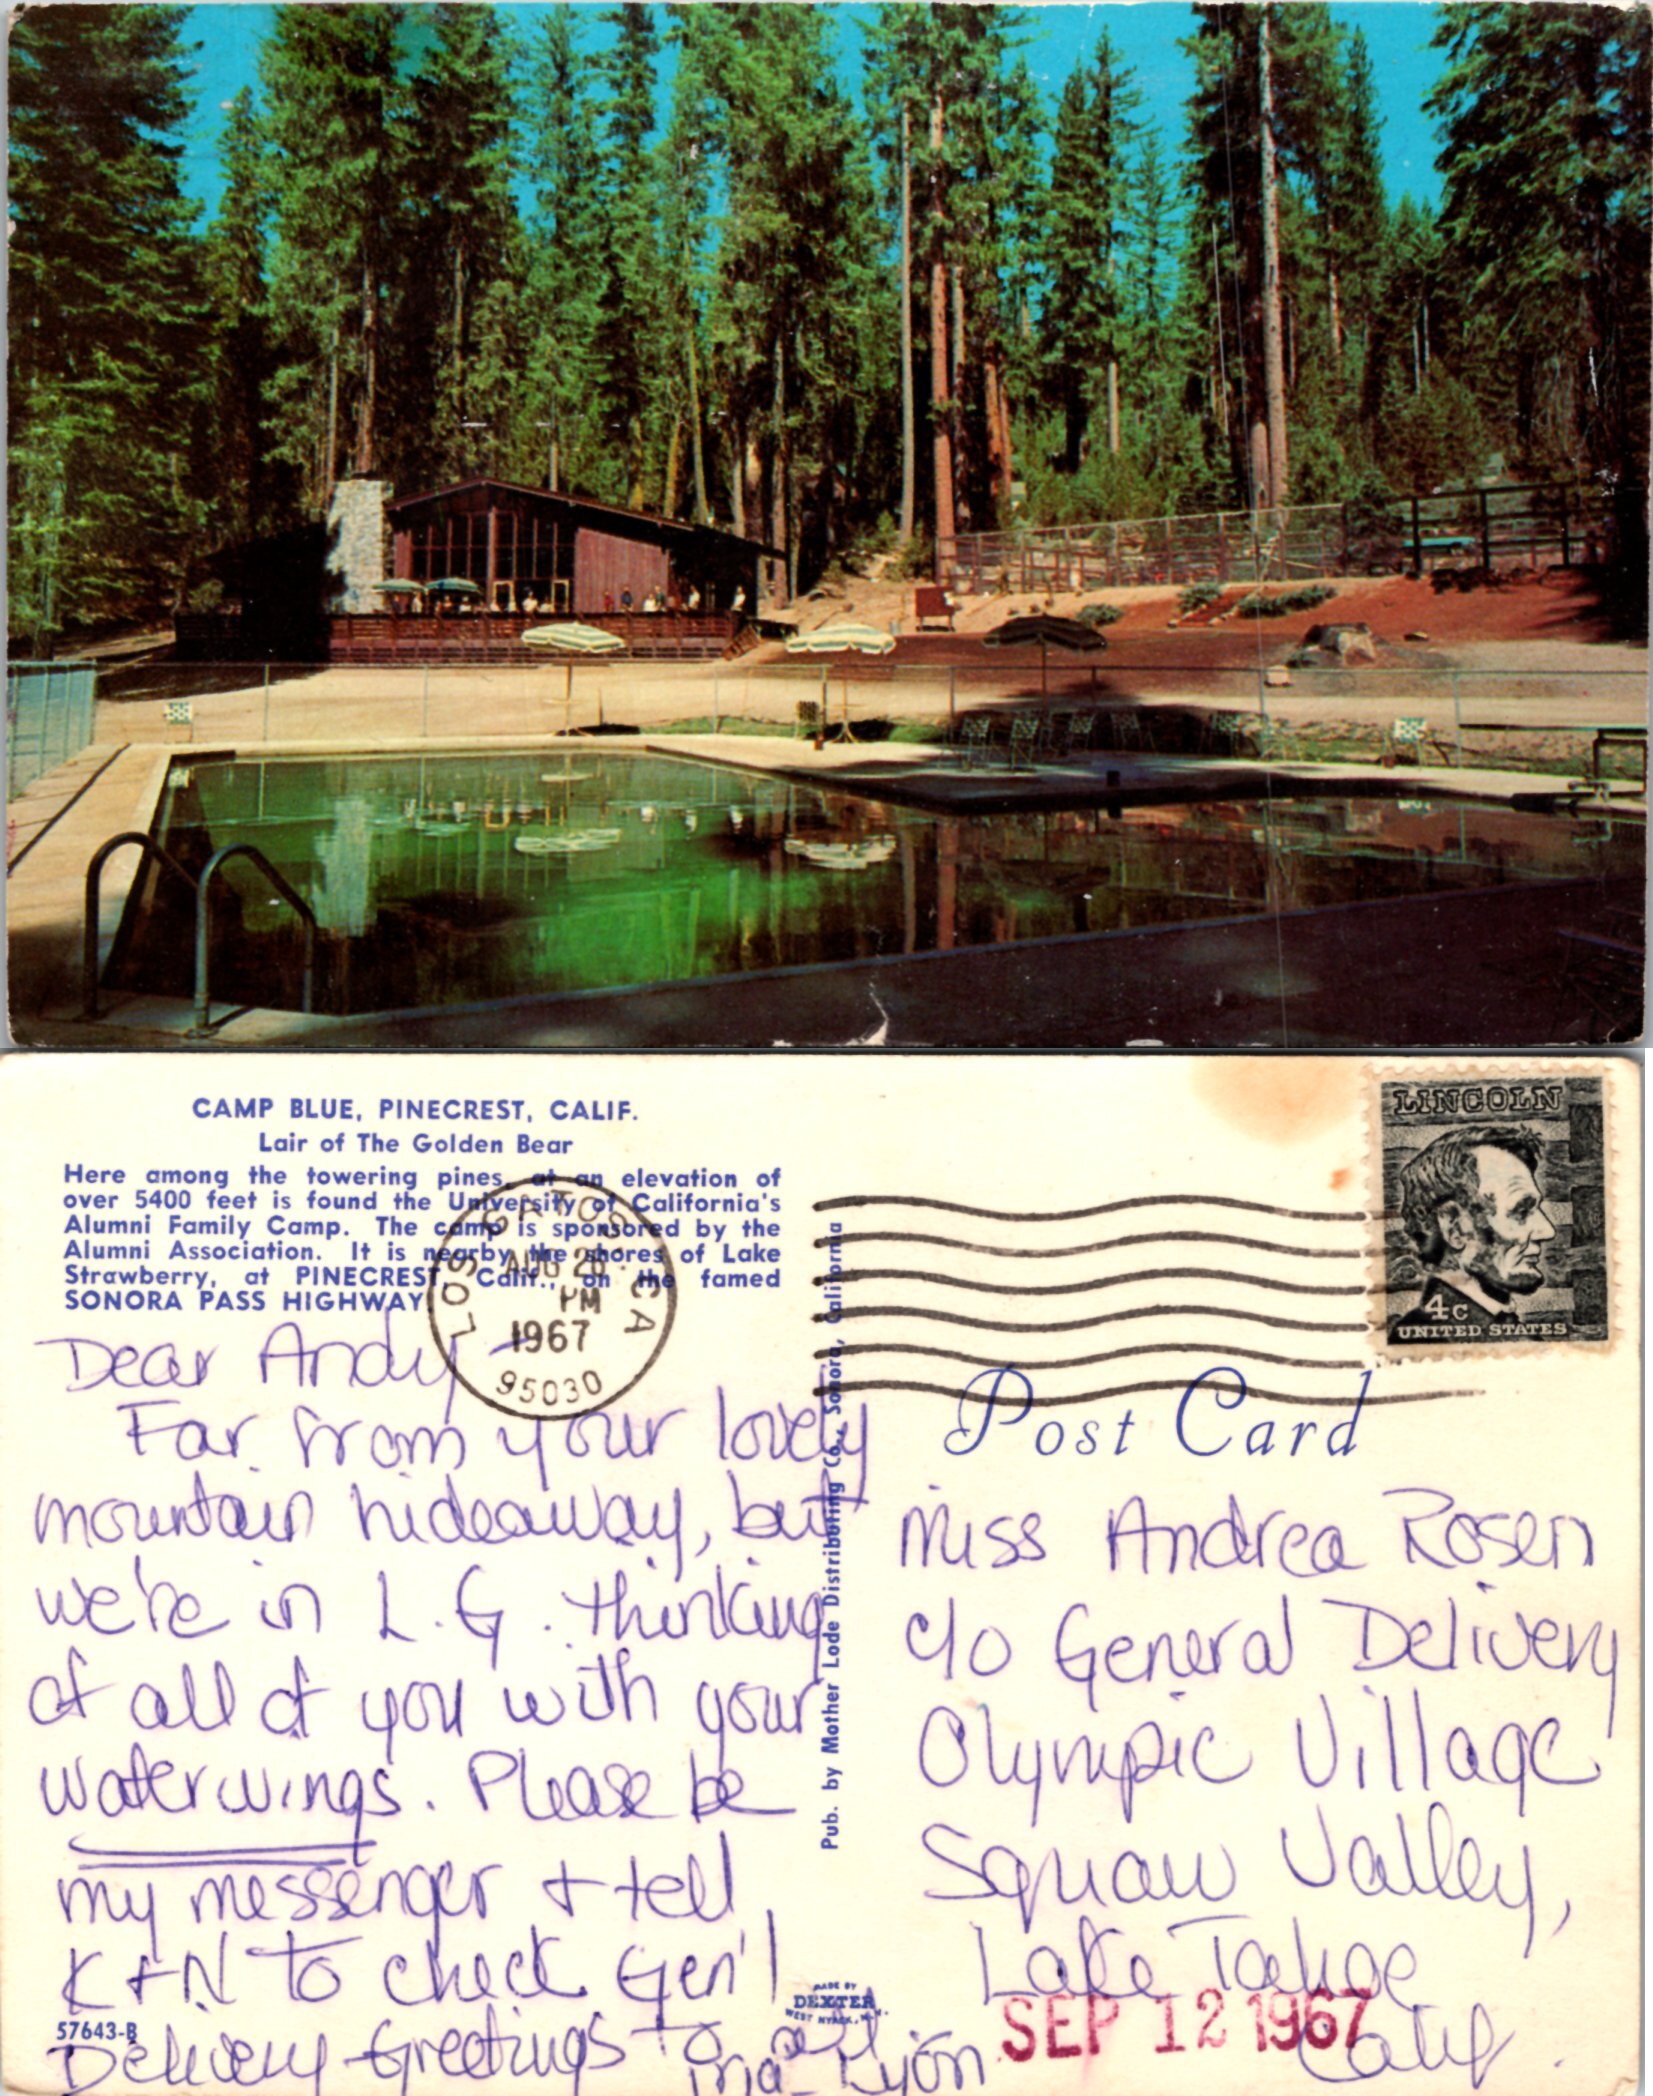 CAMP BLUE, PINECREST, CALIF.
Lair of The Golden Bear
Here among the towering pines, at an elevation of
over 5400 feet is found the University of California's
Alumni Family Camp. The camp is sponsored by the
Alumni Association. It is nearby the shores of Lake
Strawberry, at PINECREST, Calif., on the famed
SONORA PASS HIGHWAY
LOS GATOS, CA
AUG 26
PM
1967
95030
LINCOLN
4c
UNITED STATES
Dear Andy -
Far from your lovely
mountain hideaway, but
we're in L.G. thinking
of all of you with your
waterwings. Please be
my messenger + tell
K + N to check Gen'l
Delivery Greetings to all.
Ina Lyon
Pub. by Mother Lode Distributing Co., Sonora, California
Post Card
Miss Andrea Rosen
c/o General Delivery
Olympic Village
Squaw Valley,
Lake Tahoe
Calif.
SEP 12 1967
MADE BY
DEXTER
WEST NYACK, N.Y.
57643-B